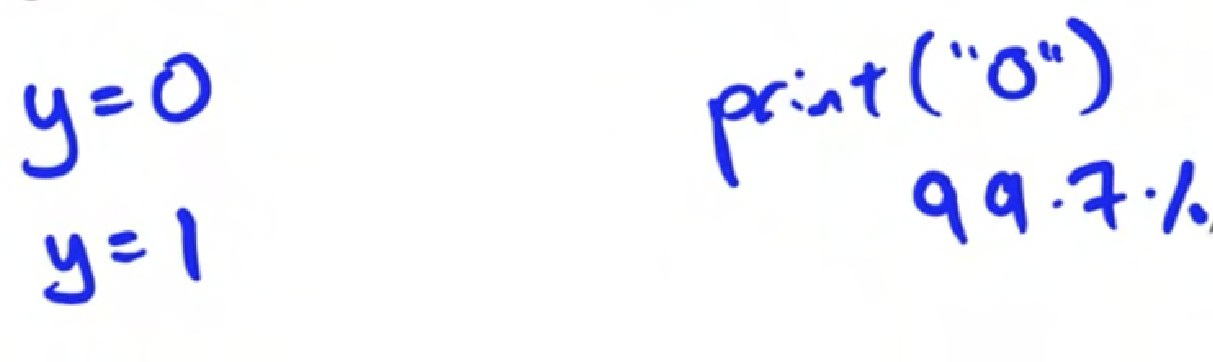 y=0
y=1
print("0")
99.7%